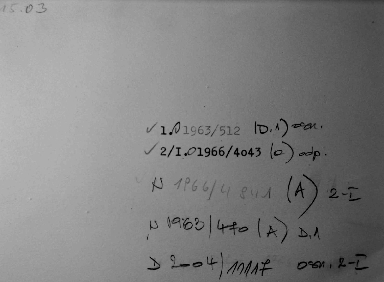 15.03
✓ 1.O 1963/512 (D.1) osn.
✓ 2/I.O1966/4043 (O) odp.
N 1966/4 841 (A) 2-I
N 1963/470 (A) D.1
D 2004/11117 osn. 2-I